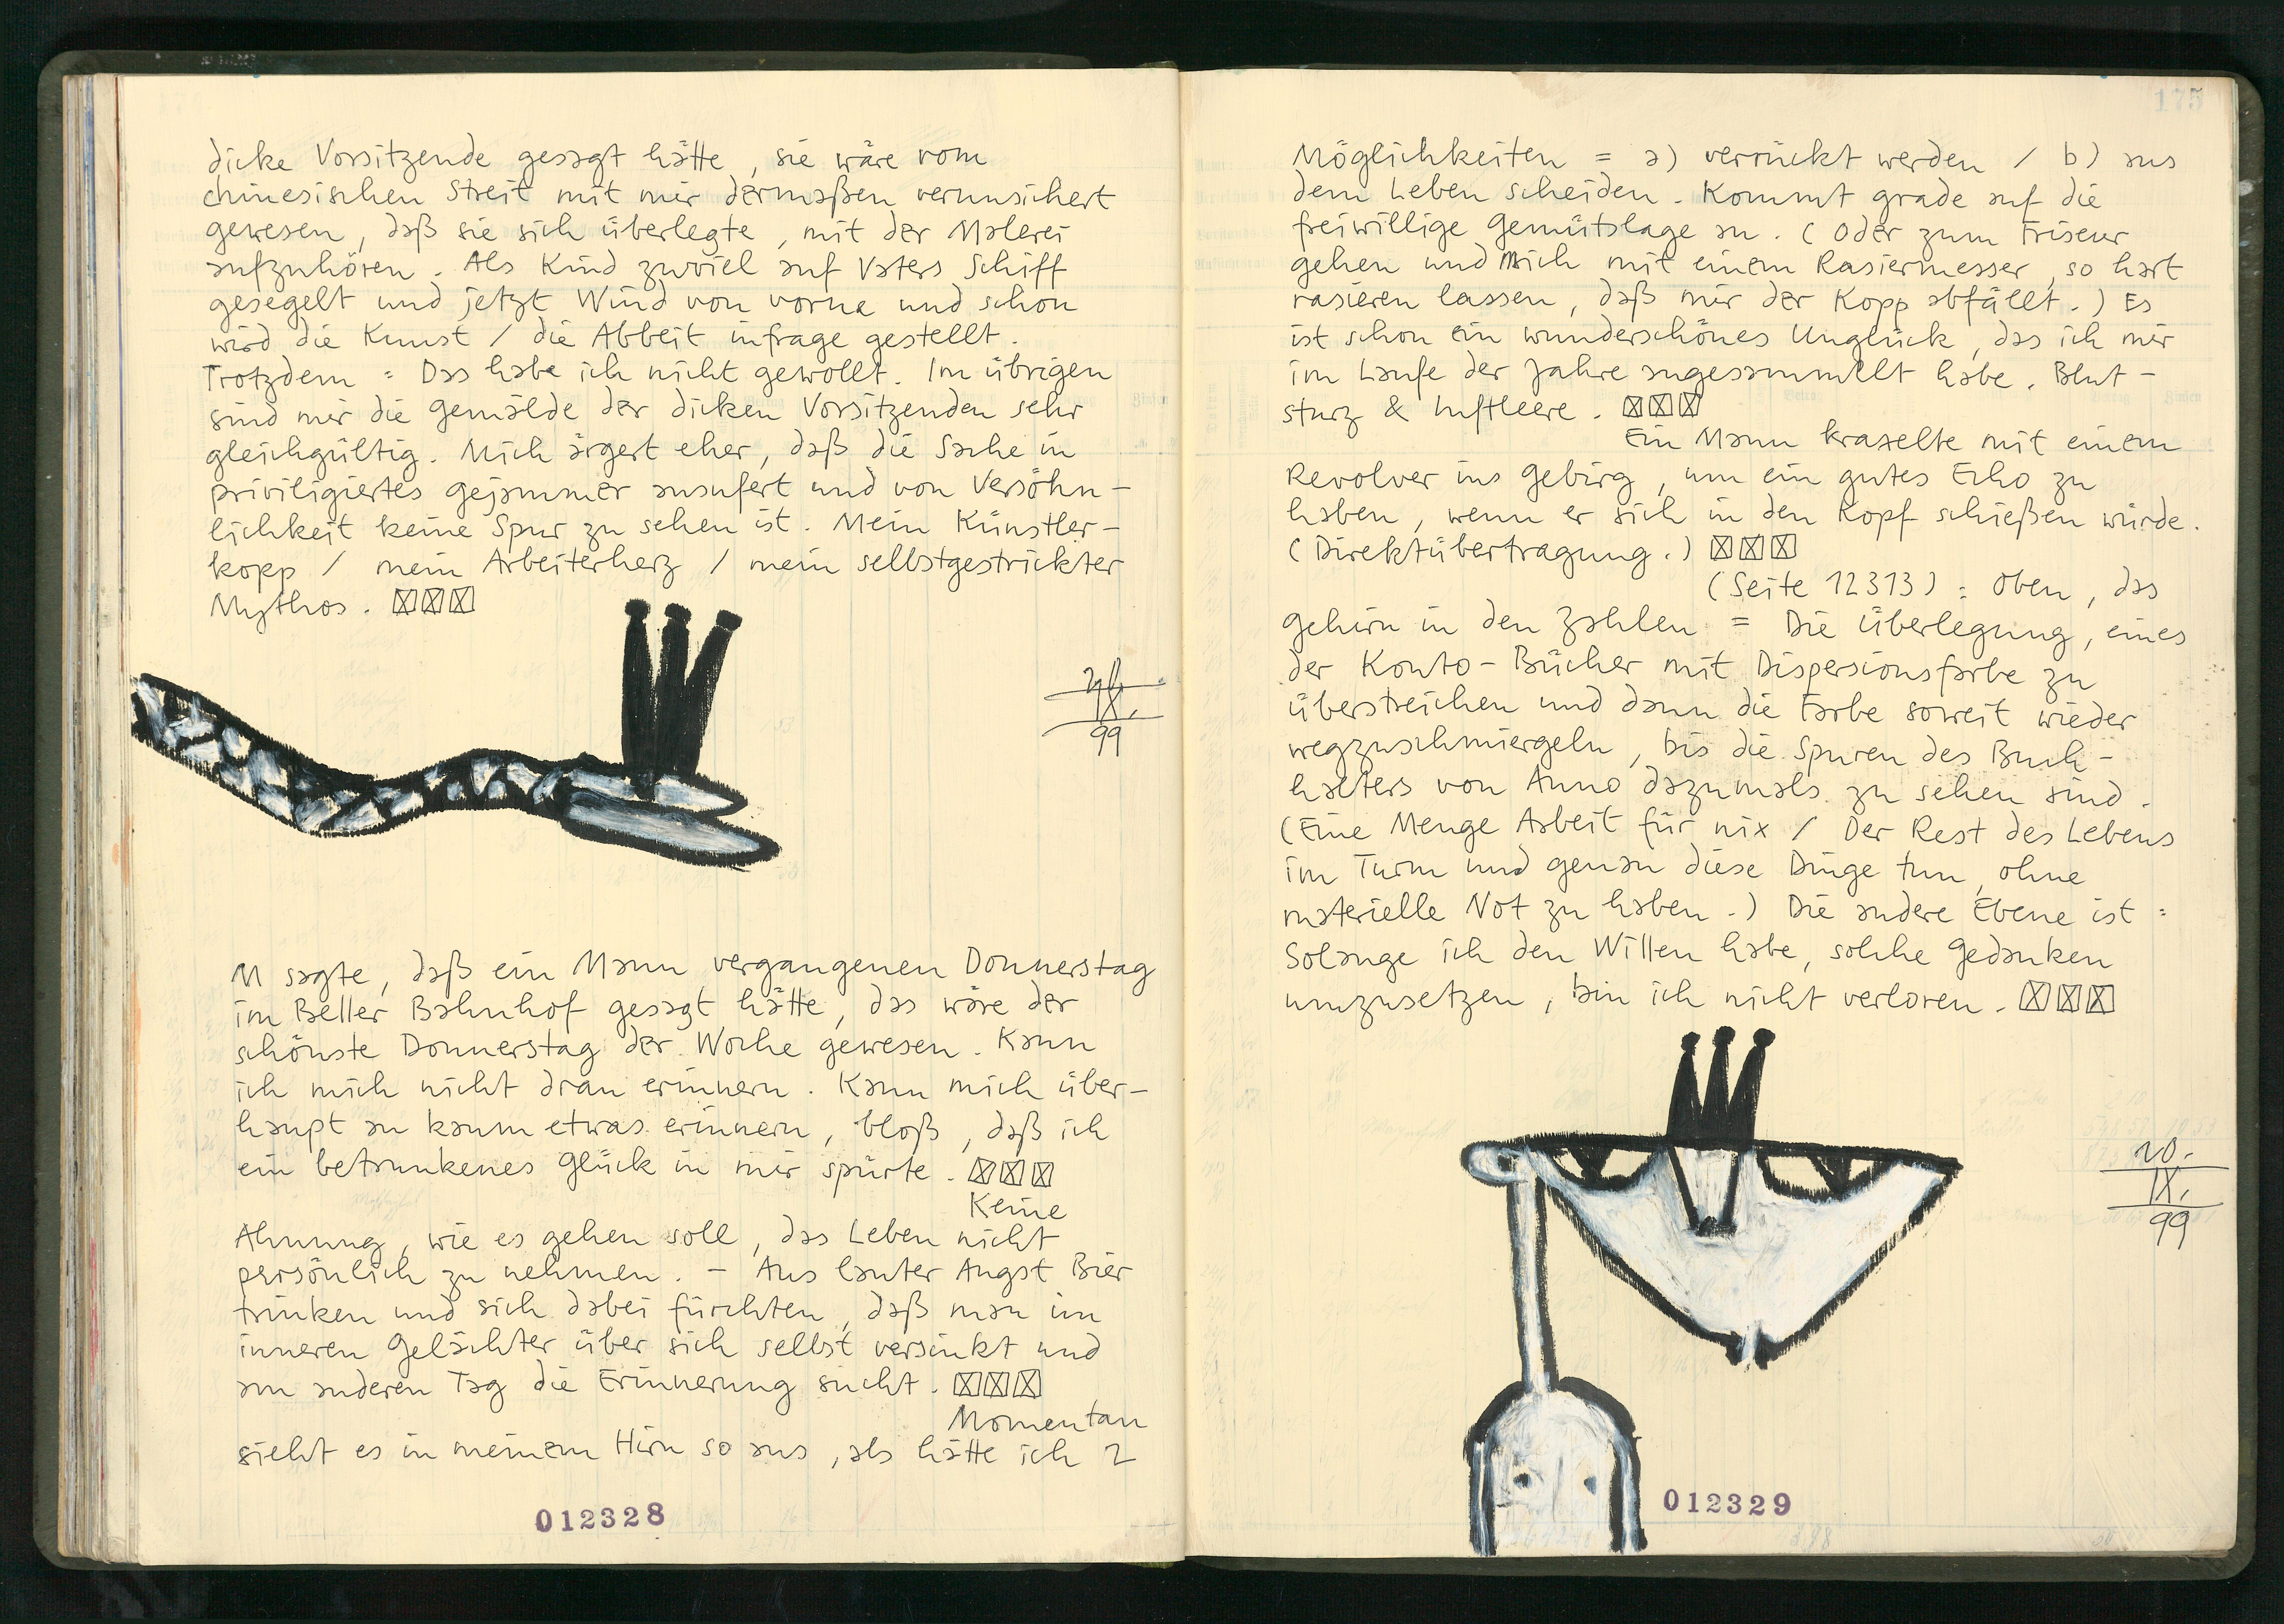 dicke Vorsitzende gesagt hätte, sie wäre vom
chinesischen Streit mit mir dermaßen verunsichert
gewesen, daß sie sich überlegte, mit der Malerei
aufzuhören. Als Kind zuviel auf Vaters Schiff
gesegelt und jetzt Wind von vorne und schon
wird die Kunst / die Abbeit infrage gestellt.
Trotzdem = Das habe ich nicht gewollt. Im übrigen
sind mir die Gemälde der dicken Vorsitzenden sehr
gleichgültig. Mich ärgert eher, daß die Sache in
priviligiertes Gejammer ausufert und von Versöhn-
lichkeit keine Spur zu sehen ist. Mein Künstler-
kopp / mein Arbeiterherz / mein selbstgestrickter
Mythos. ☒☒☒
IX.
99
M sagte, daß ein Mann vergangenen Donnerstag
im Beller Bahnhof gesagt hätte, das wäre der
schönste Donnerstag der Woche gewesen. Kann
ich mich nicht dran erinnern. Kann mich über-
haupt an kaum etwas erinnern, bloß, daß ich
ein betrunkenes Glück in mir spürte. ☒☒☒
Keine
Ahnung, wie es gehen soll, das Leben nicht
persönlich zu nehmen. - Aus lauter Angst Bier
trinken und sich dabei fürchten, daß man im
inneren Gelächter über sich selbst versinkt und
am anderen Tag die Erinnerung sucht. ☒☒☒
Momentan
sieht es in meinem Hirn so aus, als hätte ich 2
012328
175
Möglichkeiten = a) verrückt werden / b) aus
dem Leben scheiden. Kommt grade auf die
freiwillige Gemütslage an. (Oder zum Friseur
gehen und mich mit einem Rasiermesser, so hart
rasieren lassen, daß mir der Kopp abfällt.) Es
ist schon ein wunderschönes Unglück, das ich mir
im Laufe der Jahre angesammelt habe. Blut-
sturz & Luftleere. ☒☒☒
Ein Mann kraxelte mit einem
Revolver ins Gebirg, um ein gutes Echo zu
haben, wenn er sich in den Kopf schießen würde.
(Direktübertragung.) ☒☒☒
(Seite 12313) = Oben, das
Gehirn in den Zahlen = Die Überlegung, eines
der Konto-Bücher mit Dispersionsfarbe zu
überstreichen und dann die Farbe soweit wieder
wegzuschmiergeln, bis die Spuren des Buch-
halters von Anno dazumals zu sehen sind.
(Eine Menge Arbeit für nix / Der Rest des Lebens
im Turm und genau diese Dinge tun, ohne
materielle Not zu haben.) Die andere Ebene ist =
Solange ich den Willen habe, solche Gedanken
umzusetzen, bin ich nicht verloren. ☒☒☒
20.
IX.
99
012329